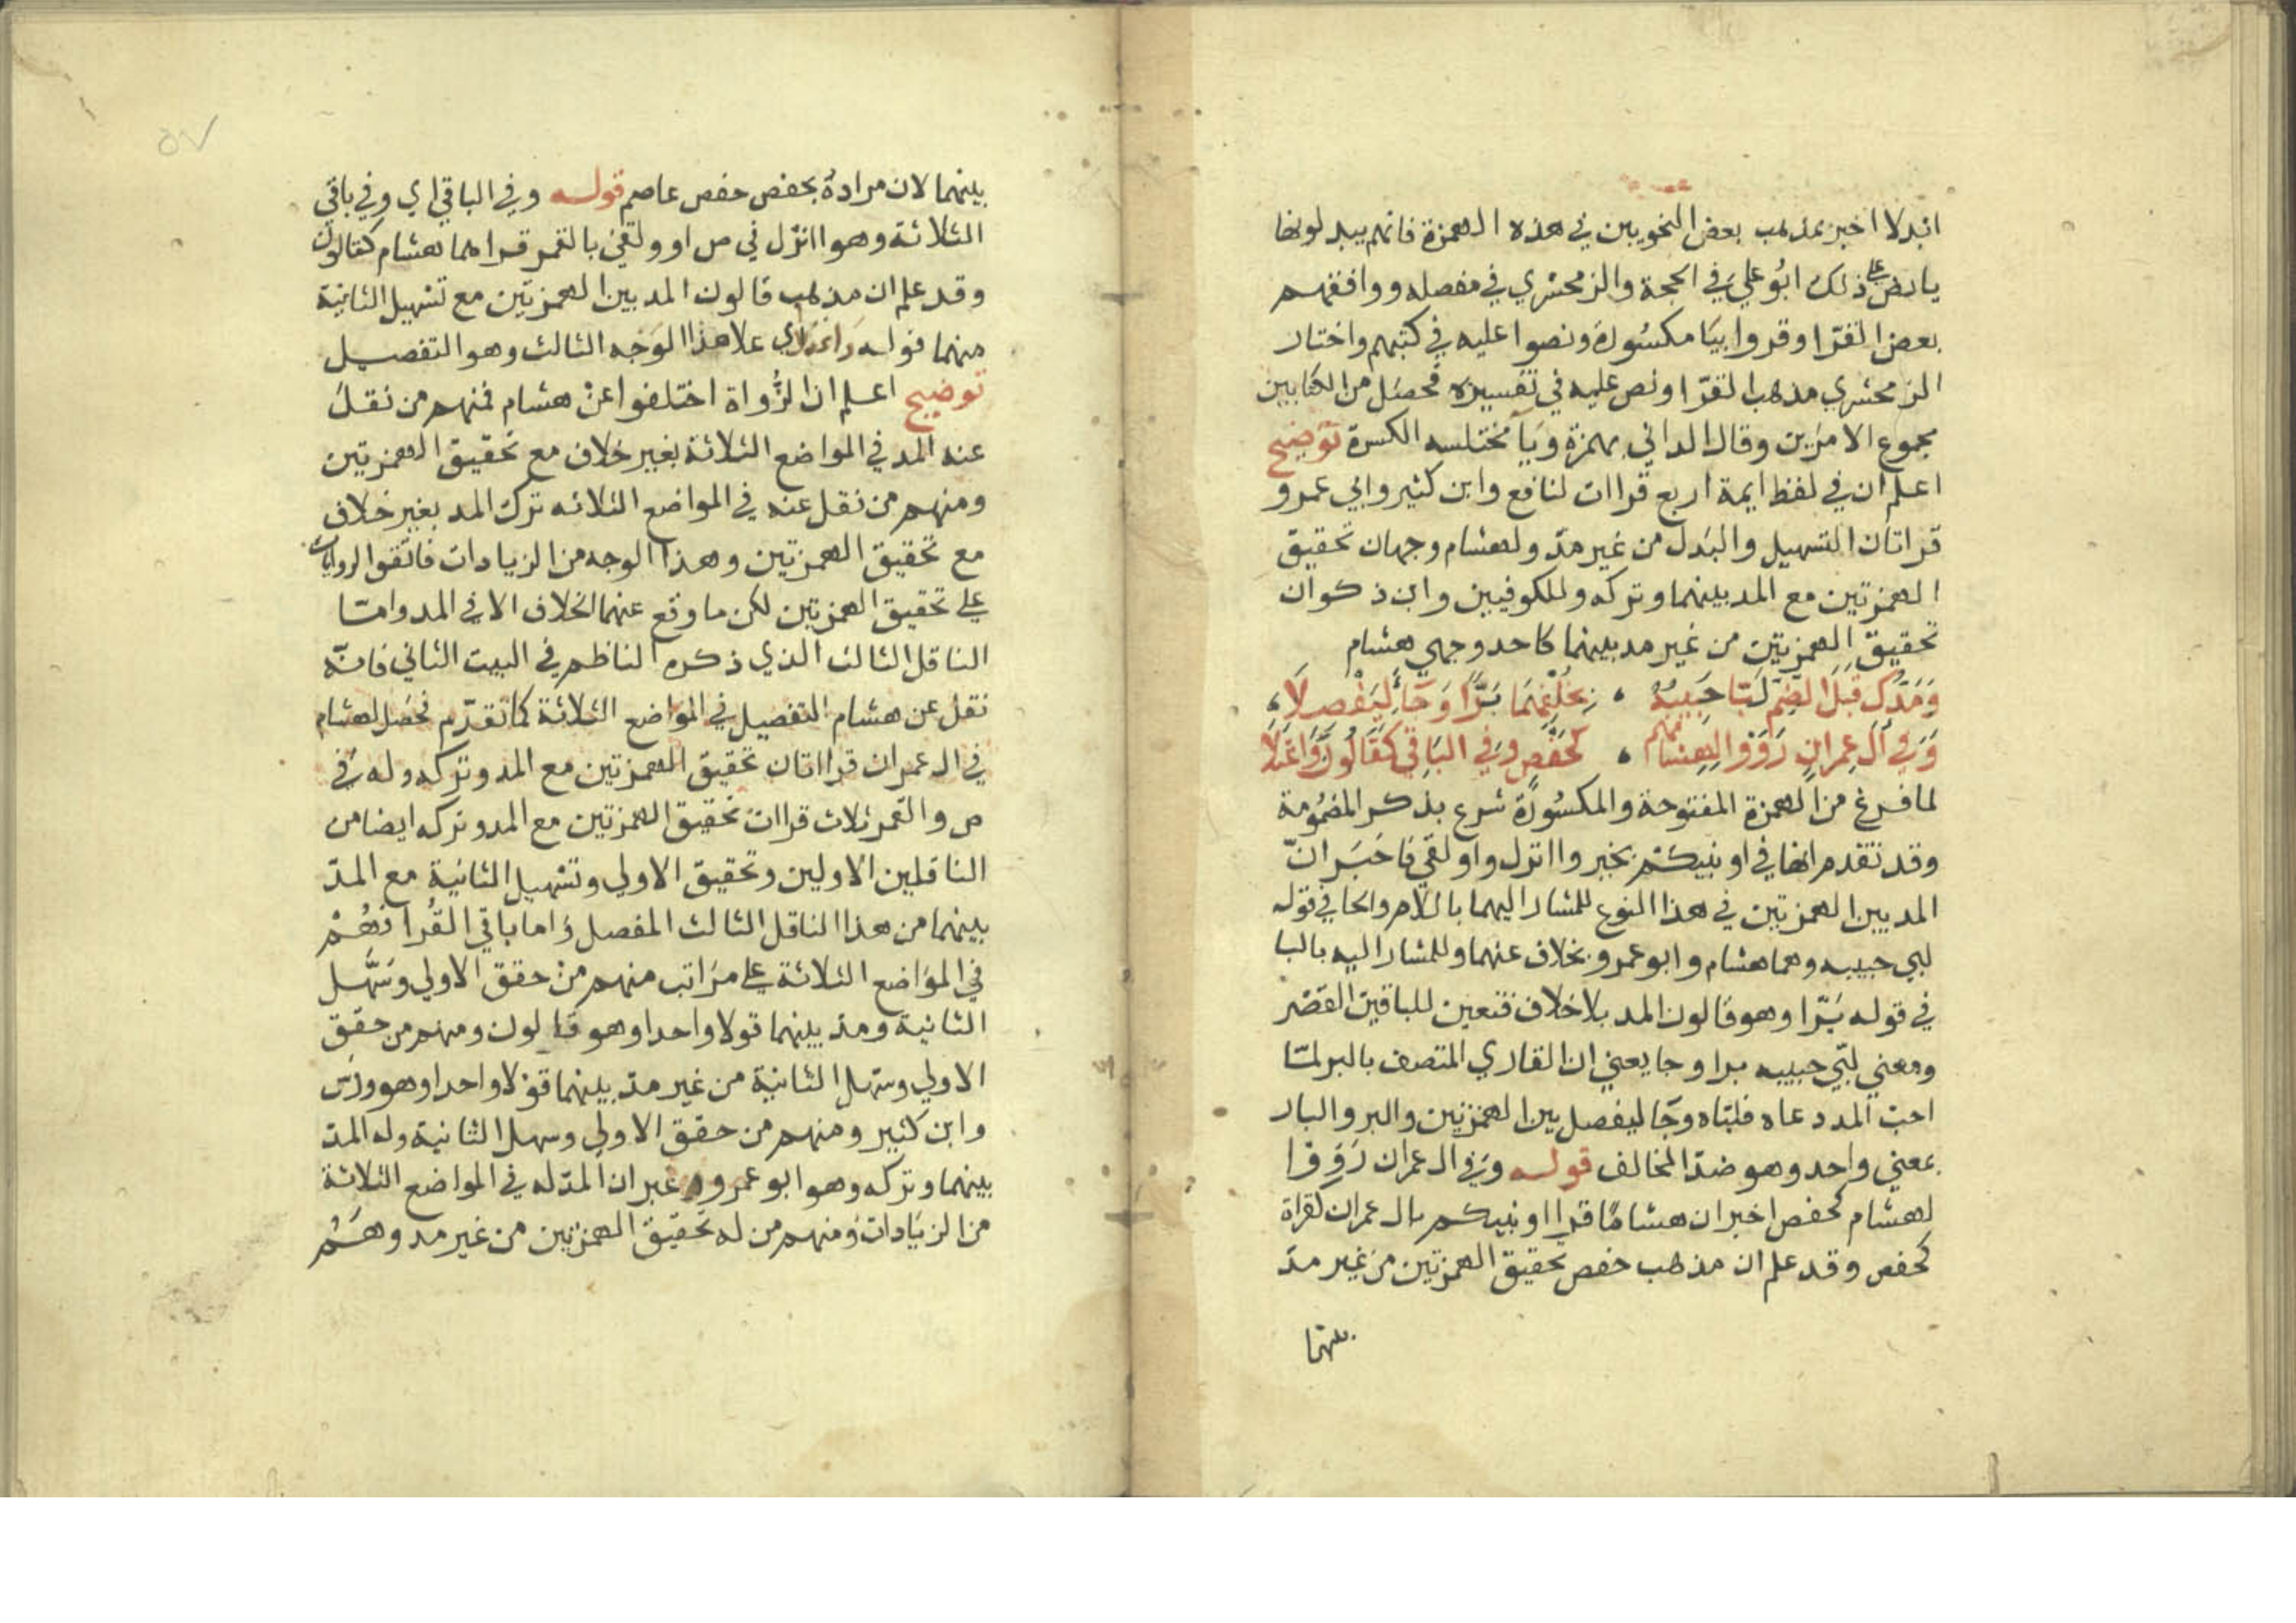 ابدلا اخبر بمذهب بعض النحويين في هذه الهمزة فانهم يبدلونها
يا نص على ذلك ابو علي في الحجة والزمخشري في مفصله ووافقهم
بعض القرا وقروا بيا مكسورة ونصوا عليه في كتبهم واختار
الزمخشري مذهب القرا ونص عليه في تفسيره فحصل من الكتابين
مجموع الامرين وقال الداني بهمزة ويا مختلسه الكسرة توضيح
اعلم ان في لفظ ايمة اربع قراات لنافع وابن كثير وابي عمرو
قراتان التسهيل والبدل من غير مدّ ولهشام وجهان تحقيق
الهمزتين مع المد بينهما وتركه وللكوفيين وابن ذكوان
تحقيق الهمزتين من غير مد بينهما كاحد وجهي هشام
وَمَدُّكَ قَبْلَ الضَّمِّ لَبَّا حَبِيبُهُ ، بِخُلْفِهِمَا بَرًّا وَجَاءَ لِيَفْصِلَا ،
وَفِي آلِ عِمْرَانٍ رَوَوْا لِهِشَامِهِمْ ، كَحَفْصٍ وَفِي البَاقِي كَقَالُونَ وَاعْتَلَا
لما فرغ من الهمزة المفتوحة والمكسورة شرع بذكر المضمومة
وقد تقدم انها في اونبيكم بخير واانزل واولقي فاخبر انّ
المد بين الهمزتين في هذا النوع للمشار اليهما باللام والحا في قوله
لبي حبيبه وهما هشام وابو عمرو بخلاف عنهما وللمشار اليه بالبا
في قوله بَرّا وهو قالون المد بلا خلاف فتعين للباقين القصر
ومعني لبّي حبيبه برا وجا يعني ان القاري المتصف بالبر لمّا
احبّ المد دعاه فلبّاه وجا ليفصل بين الهمزتين والبر والبار
بمعني واحد وهو ضدّ المخالف قوله وفي ال عمران رووا
لهشام كحفص اخبر ان هشاما قرا اونبيكم بال عمران لقراة
كحفص وقد علم ان مذهب حفص تحقيق الهمزتين من غير مدّ
بينهما
٥٧
بينهما لان مراده بحفص حفص عاصم قوله وفي الباقي اي وفي باقي
الثلاثة وهو اانزل في ص اوولقي بالقمر قراهما هشام كقالون
وقد علم ان مذهب قالون المد بين الهمزتين مع تسهيل الثانية
منهما قوله واعتلا اي علا هذا الوجه الثالث وهو التفصيل
توضيح اعلم ان الرُّواة اختلفوا عن هشام فمنهم من نقل
عنه المد في المواضع الثلاثة بغير خلاف مع تحقيق الهمزتين
ومنهم من نقل عنه في المواضع الثلاثه ترك المد بغير خلاف
مع تحقيق الهمزتين وهذا الوجه من الزيادات فاتفقوا الروايات
على تحقيق الهمزتين لكن ما وقع عنهما الخلاف الا في المد وامّا
الناقل الثالث الذي ذكره الناظم في البيت الثاني فانّه
نقل عن هشام التفصيل في المواضع الثلاثة كما تقدّم فحصل لهشام
في ال عمران قرااتان تحقيق الهمزتين مع المد وتركه وله في
ص والقمر ثلاث قراات تحقيق الهمزتين مع المد وتركه ايضا من
الناقلين الاولين وتحقيق الاولي وتسهيل الثانية مع المدّ
بينهما من هذا الناقل الثالث المفصل واما باقي القُرا فهُمْ
في المواضع الثلاثة على مراتب منهم من حقق الاولي وسَهَّل
الثانية ومدّ بينهما قولا واحدا وهو قالون ومنهم من حقق
الاولي وسهّل الثانية من غير مدّ بينهما قولا واحدا وهو ورش
وابن كثير ومنهم من حقق الاولي وسهل الثانية وله المدّ
بينهما وتركه وهو ابو عمرو غير ان المدّ له في المواضع الثلاثة
من الزيادات ومنهم من له تحقيق الهمزتين من غير مد وهَمُ